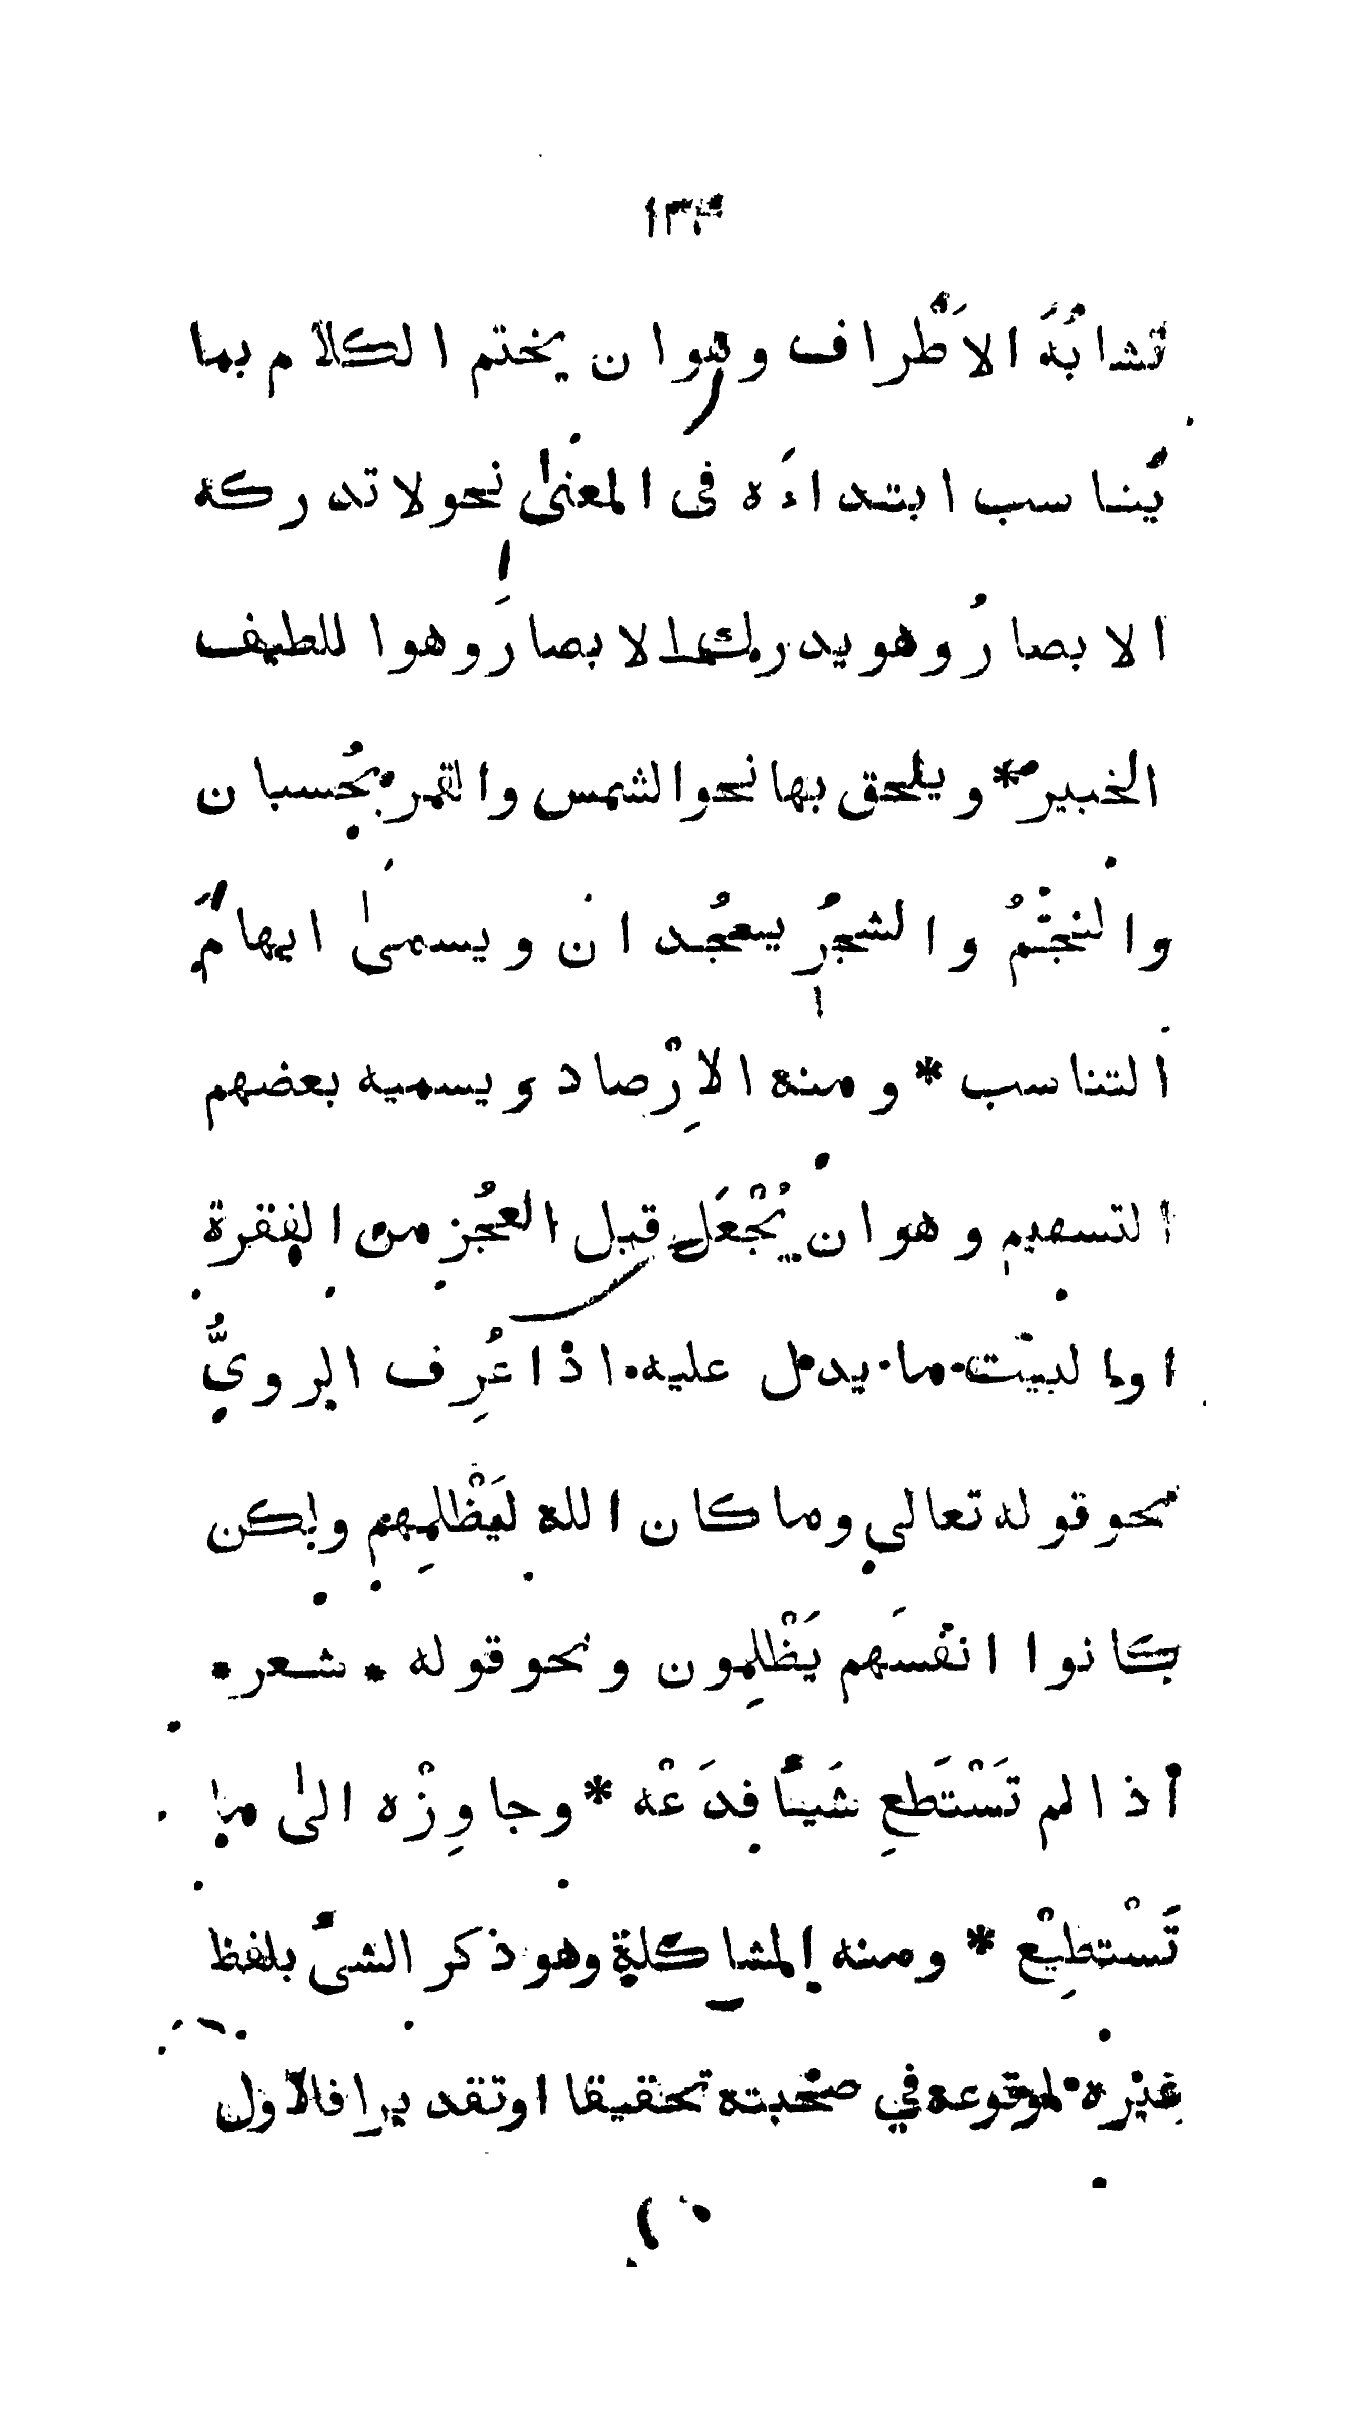 تشابُهَ الاَطْراف وهوان يختم الكلام بما
يُناسب ابتداءَه فى المعنىٰ نحولا تدركه
الابصارُ وهو يدرك الابصارَ وهوا للطيف
الخبير * ويلحق بها نحوالشمس والقمر بحُسبان
والنجْمُ والشجُر يسجُدان ويسمىٰ ايهامُ
التناسب * ومنه الاِرْصاد ويسميه بعضهم
التسهيم وهوان يُجْعَل قبل العجُز من الفقرة
اوالبيت ما يدل عليه اذا عُرِف الرويُّ
نحو قوله تعالي وما كان الله ليَظْلِمهم ولكن
كانوا انفسَهم يَظْلِمون ونحوقوله * شعر *
اذا لم تَسْتَطعِ شَيئاً فدَعْه * وجاوِزْه الىٰ ما
تَسْتطِيْع * ومنه المشاكلة وهو ذكر الشىً بلفظ
غيْره لوقوعه في صحْبته تحقيقا اوتقديرا فالاول